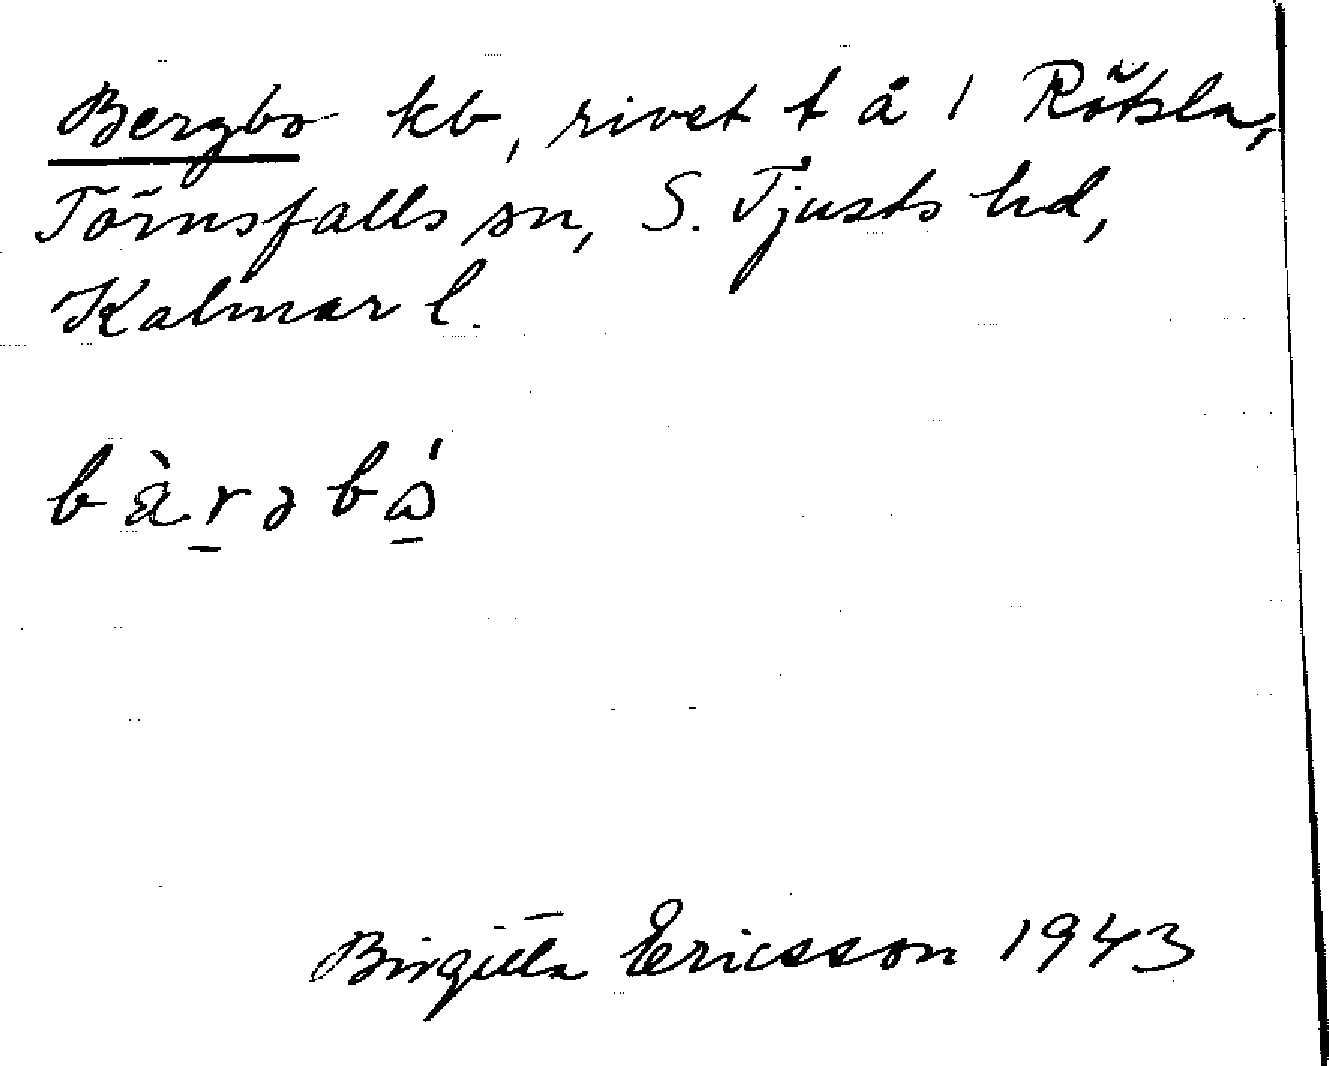 Bergbo kb, rivet t å 1 Rötsla,
Törnsfalls sn, S. Tjusts hd,
Kalmar l.
bàrəbó
Birgitta Ericsson 1943